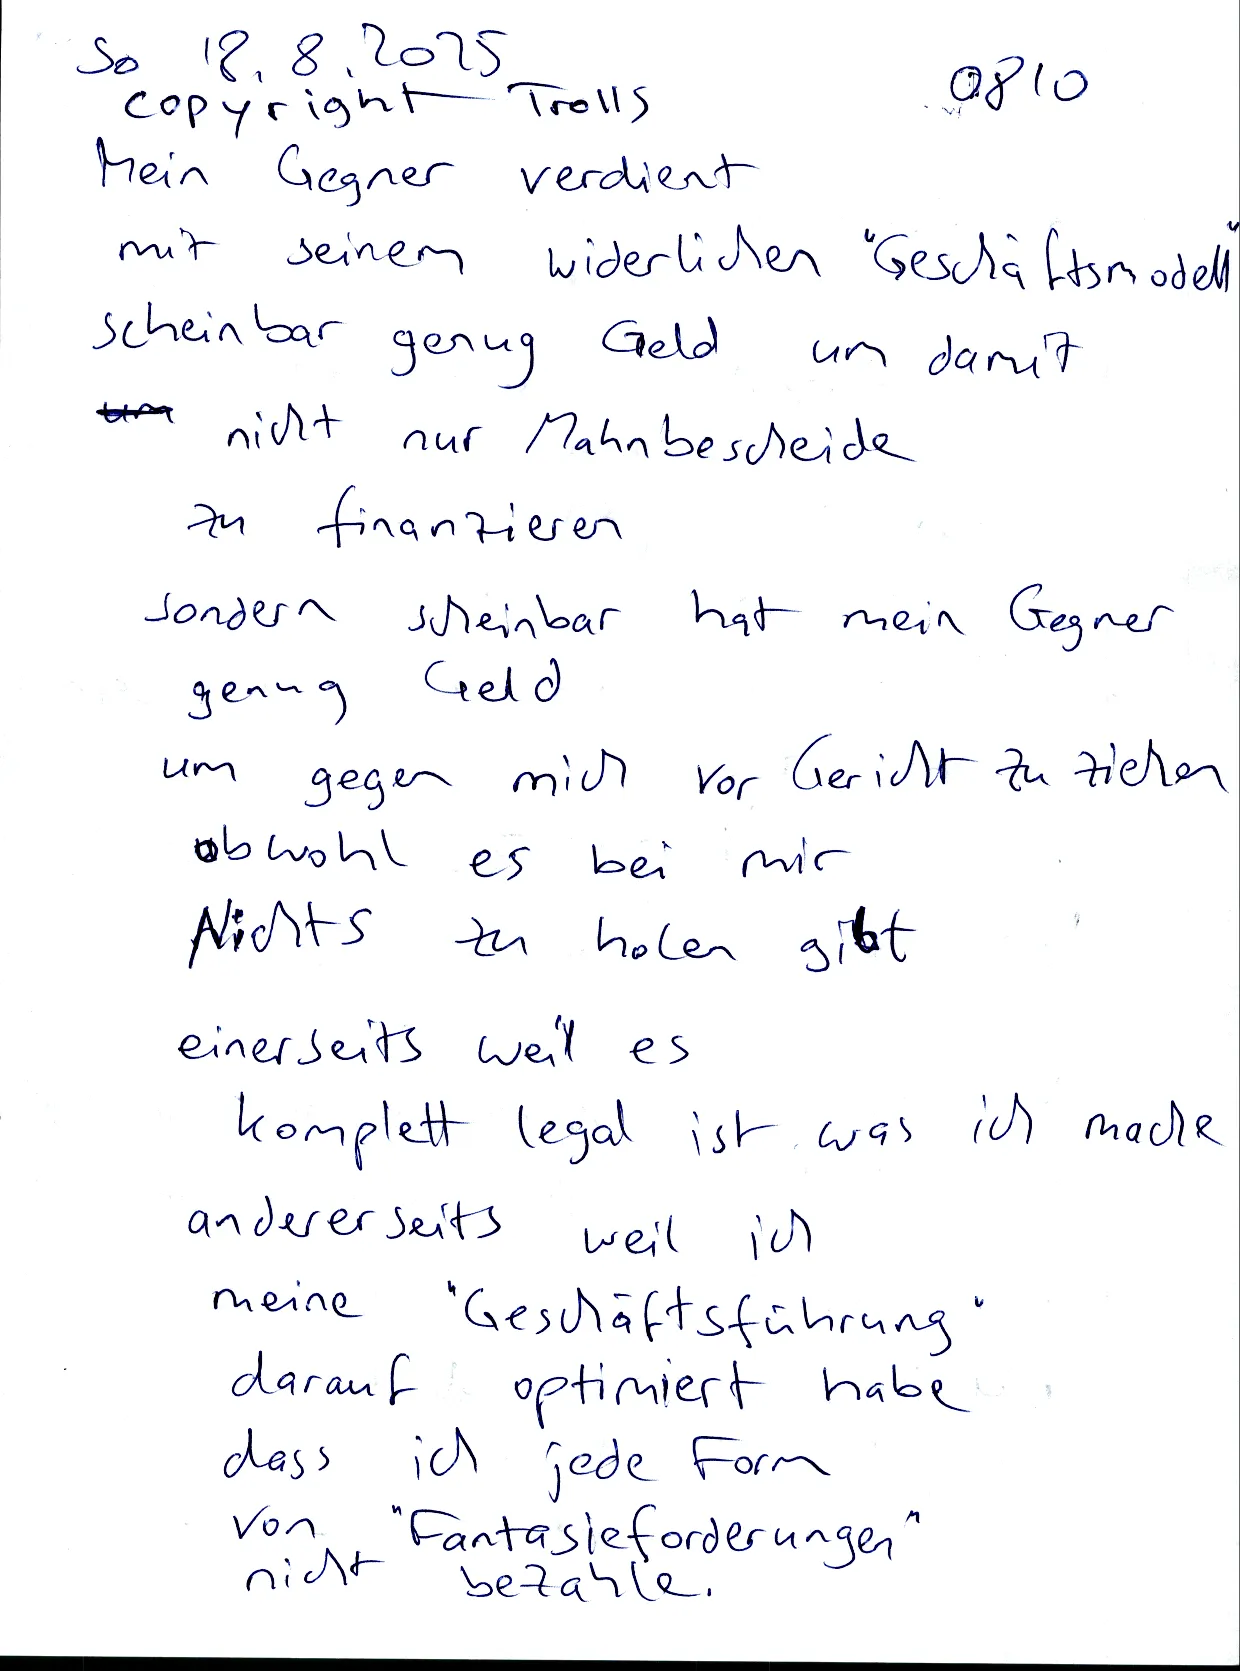 So 18.8.2025
0810
copyright Trolls
Mein Gegner verdient
mit seinem widerlichen "Geschäftsmodell"
scheinbar genug Geld um damit
um nicht nur Mahnbescheide
zu finanzieren
sondern scheinbar hat mein Gegner
genug Geld
um gegen mich vor Gericht zu ziehen
obwohl es bei mir
Nichts zu holen gibt
einerseits weil es
komplett legal ist was ich mache
andererseits weil ich
meine "Geschäftsführung"
darauf optimiert habe
dass ich jede Form
von "Fantasieforderungen"
nicht bezahle.